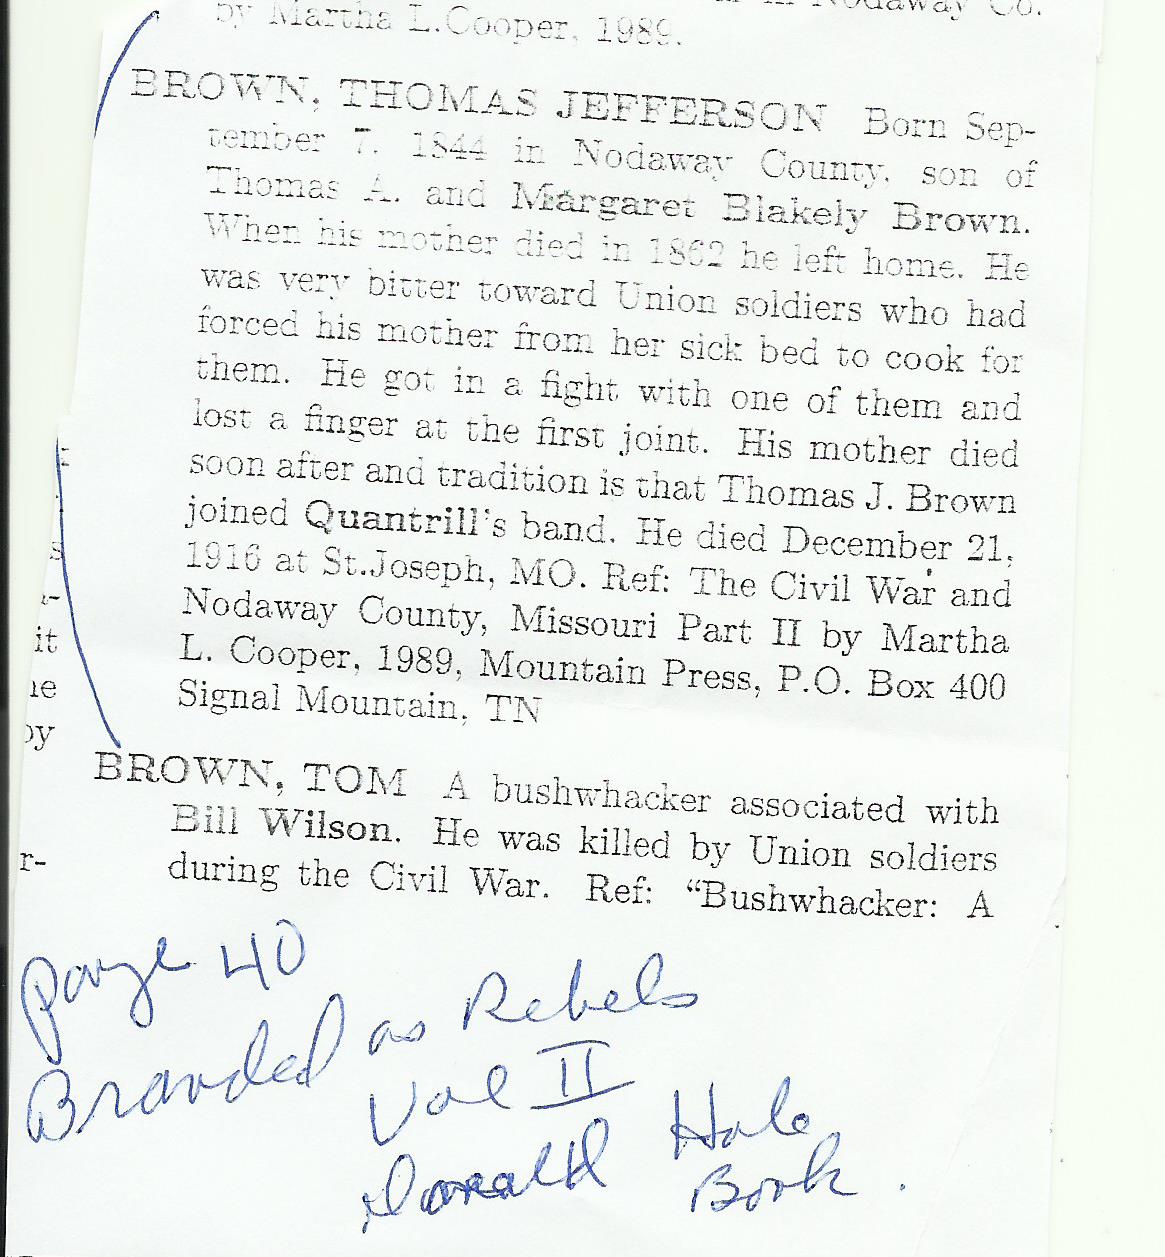 in Nodaway Co.
by Martha L.Cooper, 1989.
BROWN, THOMAS JEFFERSON Born Sep-
tember 7, 1844 in Nodaway County, son of
Thomas A. and Margaret Blakely Brown.
When his mother died in 1862 he left home. He
was very bitter toward Union soldiers who had
forced his mother from her sick bed to cook for
them. He got in a fight with one of them and
lost a finger at the first joint. His mother died
soon after and tradition is that Thomas J. Brown
joined Quantrill's band. He died December 21,
1916 at St.Joseph, MO. Ref: The Civil War and
Nodaway County, Missouri Part II by Martha
L. Cooper, 1989, Mountain Press, P.O. Box 400
Signal Mountain, TN
BROWN, TOM A bushwhacker associated with
Bill Wilson. He was killed by Union soldiers
during the Civil War. Ref: “Bushwhacker: A
s
it
by
r-
page 40
Branded as Rebels
Vol II
Donald Hale
Book.